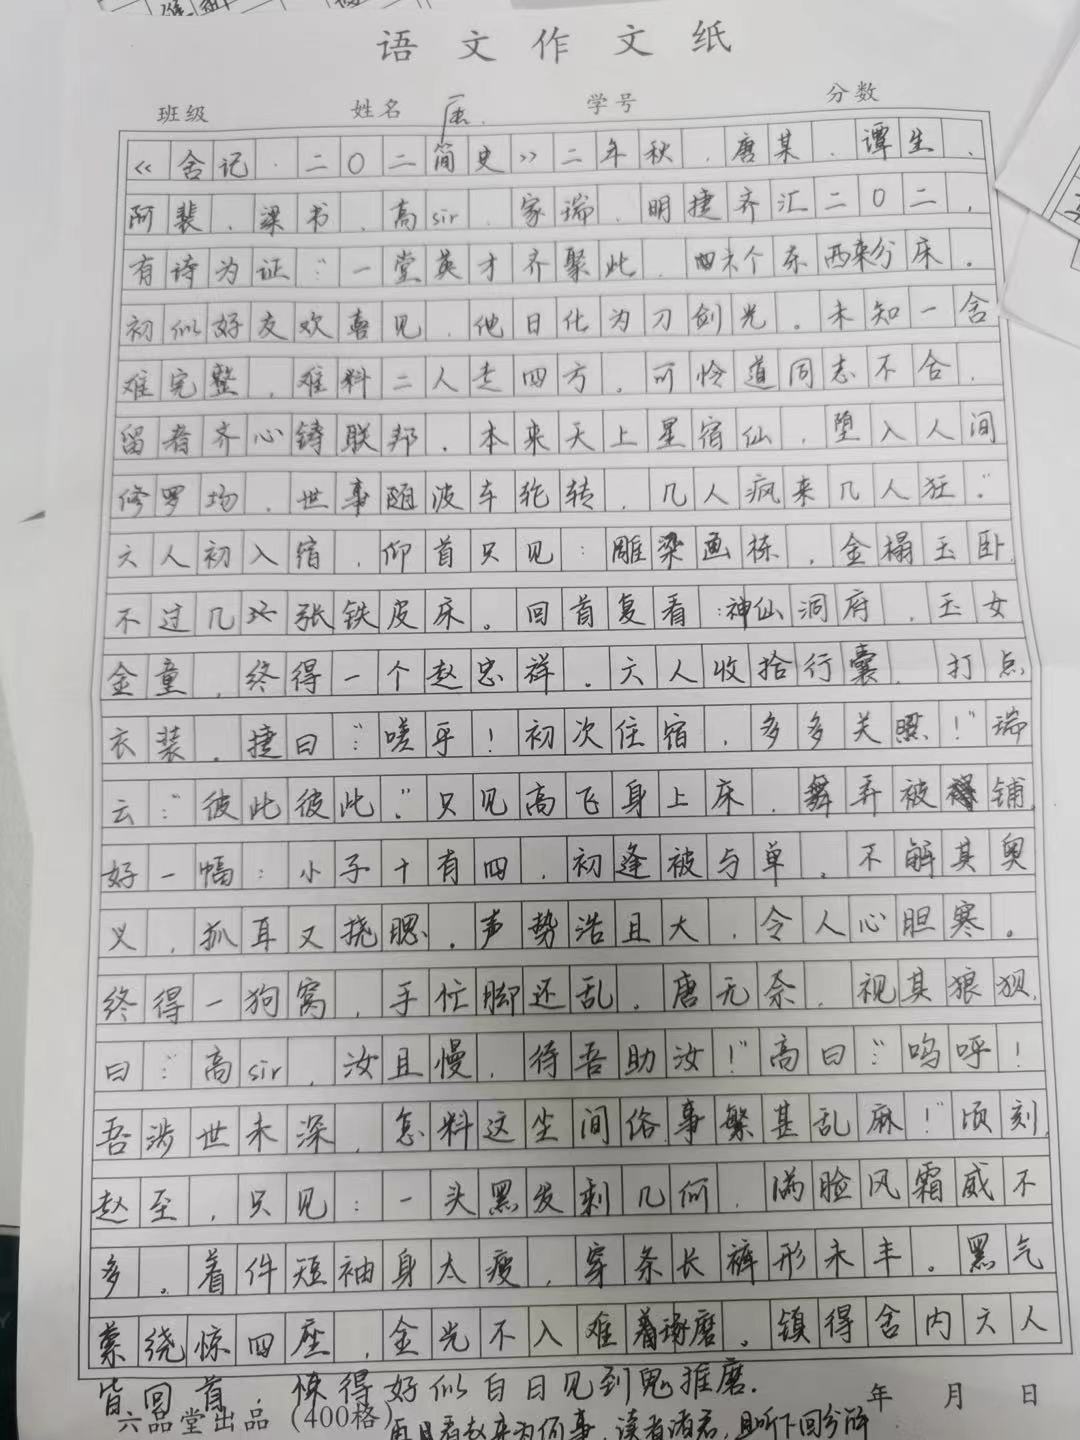 语文作文纸
班级 姓名 学号 分数
《舍记·二〇二简史》二年秋，唐某、谭生、
阿裴、梁书、高sir、家瑞、明捷齐汇二〇二，
有诗为证：“一堂英才齐聚此，四六个东西来分床。
初似好友欢喜见，他日化为刀剑光。未知一舍
难完整，难料二人走四方。可怜道同志不合，
留者齐心铸联邦。本来天上星宿仙，堕入人间
修罗场。世事随波车轮转，几人疯来几人狂。”
六人初入宿，仰首只见：雕梁画栋，金榻玉卧，
不过几张铁皮床。回首复看：神仙洞府，玉女
金童，终得一个赵忠祥。六人收拾行囊，打点
衣装。捷曰：“嗟乎！初次住宿，多多关照！”瑞
云：“彼此彼此。”只见高飞身上床，舞弄被铺，
好一幅：小子十有四，初逢被与单。不解其奥
义，抓耳又挠腮。声势浩且大，令人心胆寒。
终得一狗窝，手忙脚还乱。唐无奈，视其狼狈，
曰：“高sir，汝且慢，待吾助汝！”高曰：“呜呼！
吾涉世未深，怎料这尘间俗事繁甚乱麻！”顷刻，
赵至，只见：一头黑发剩几何，满脸风霜威不
多。着件短袖身太瘦，穿条长裤形未丰。黑气
萦绕惊四座，金光不入难着琢磨。镇得舍内六人
皆回首，惊得好似白日见到鬼推磨.
六品堂出品（400格） 年 月 日
再且看赵来为何事，读者诸君，且听下回分解